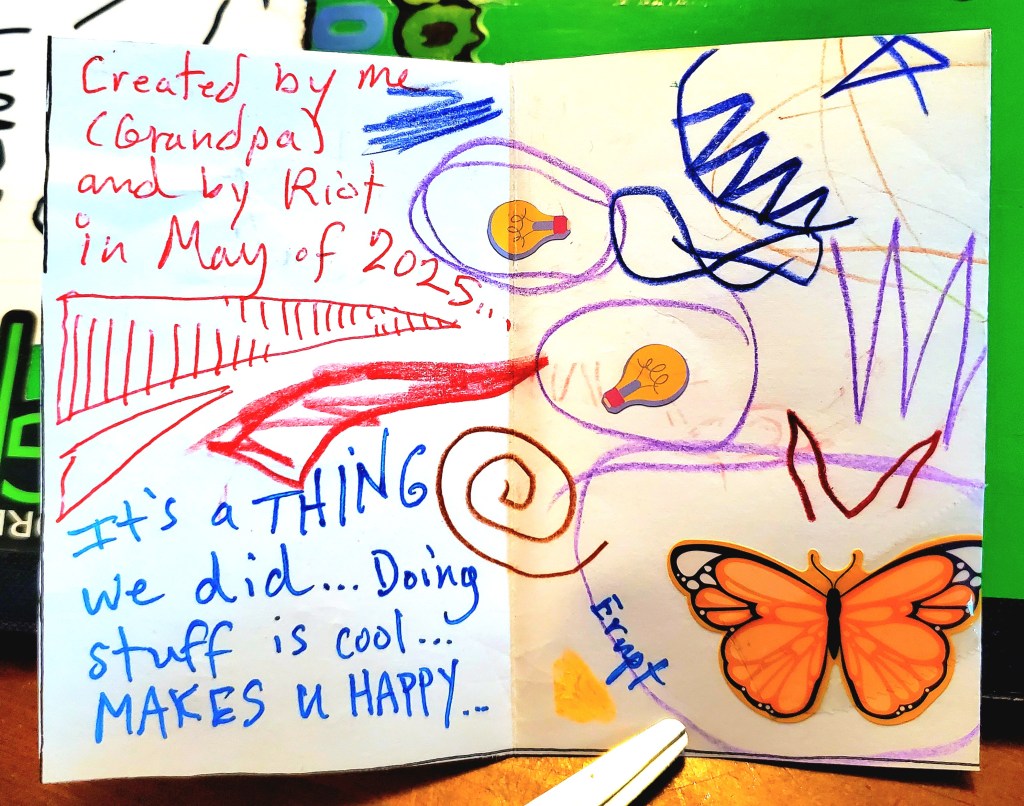 Created by me
(Grandpa)
and by Riot
in May of 2025...
It's a THING
we did... Doing
stuff is cool...
MAKES U HAPPY...
Erupt